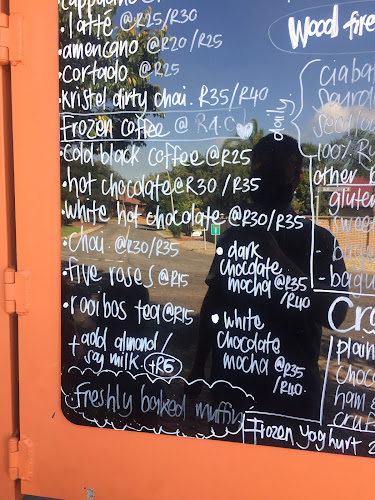 cappuccino @
• latté @R25/R30
• americano @R20/R25
• cortado @R25
• kristel dirty chai. R35/R40
Frozen coffee @ R40
• cold black coffee @R25
• hot chocolate @R30/R35
• white hot chocolate @R30/R35
• chai. @R30/R35
• five roses @R15
• rooibos tea @R15
+ add almond/
soy milk. +R5
freshly baked muffin
• dark
chocolate
mocha @R35
/R40
• white
chocolate
mocha @R35
/R40.
Wood fire
daily
ciabat
sourdo
100% Ry
other b
gluten
sweet
- bagu
Cro
plain
choco
ham &
Frozen yoghurt